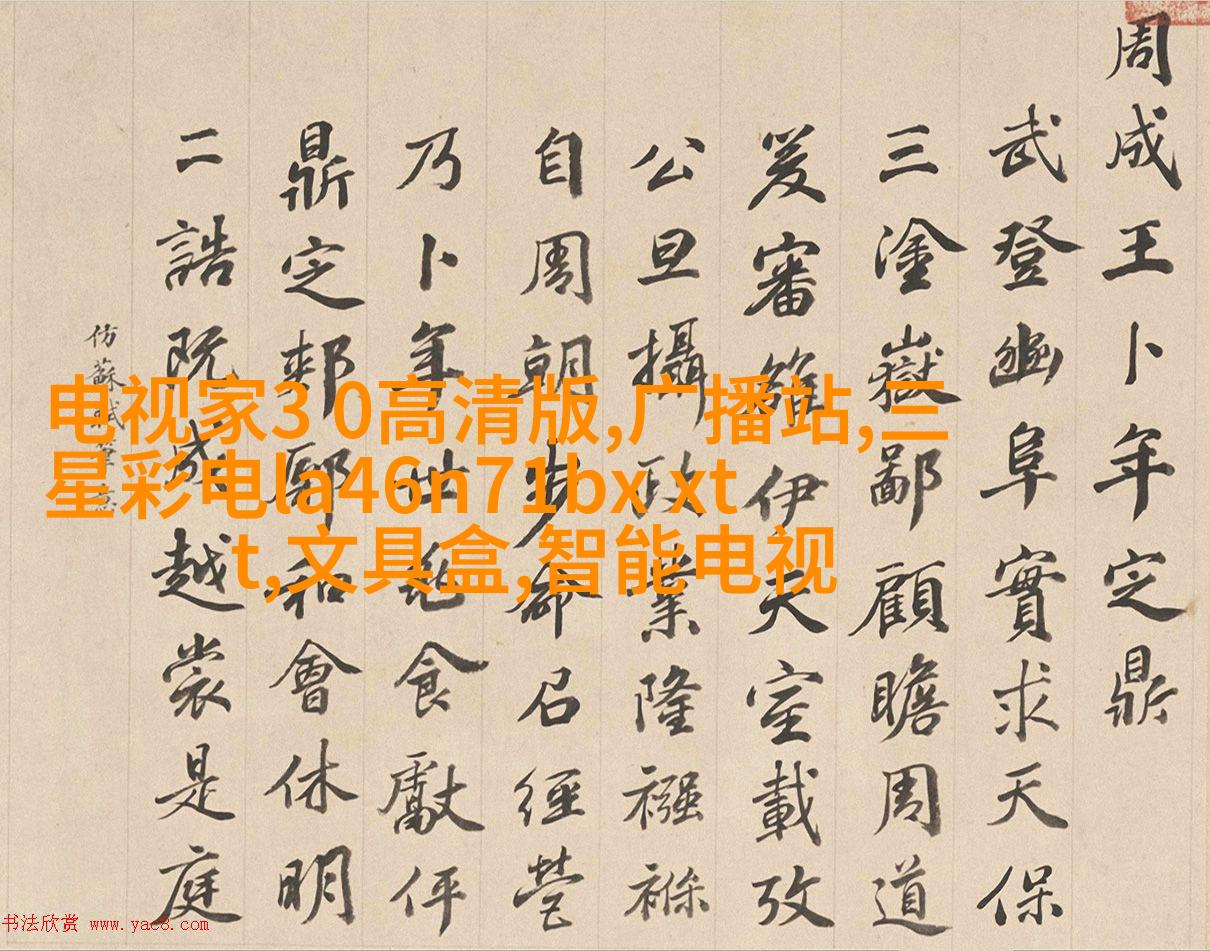 周成王卜年定鼎
武登幽阜實求天保
三塗嶽鄙顧瞻周道
爰審雒伊天室載攷
公旦攝政業隆襁褓
自周朝步召經營
乃卜年世食獻伻
鼎定郟鄏和會休明
二誥既成越裳是庭
仿蘇軾筆意
电视家3 0高清版,广播站,三
星彩电la46n71bx xt
t,文具盒,智能电视
书法欣赏 www.yac8.com